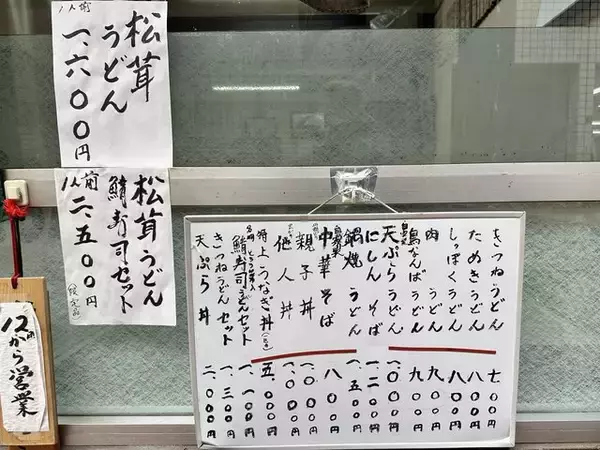 松茸
うどん
一、六〇〇円
松茸うどん
鯖寿司セット
一人前 二、五〇〇円
(限定品)
きつねうどん 七〇〇円
たぬきうどん 八〇〇円
しっぽくうどん 八〇〇円
肉うどん 九〇〇円
鶏なんばうどん 九〇〇円
天ぷらうどん 一、〇〇〇円
にしんそば 一、二〇〇円
鍋焼うどん 一、五〇〇円
中華そば 八〇〇円
親子丼 一、〇〇〇円
他人丼 一、〇〇〇円
特上うなぎ丼 五、〇〇〇円
鯖寿司うどんセット
きつねうどんセット 一、三〇〇円
天ぷら丼 二、〇〇〇円
から営業